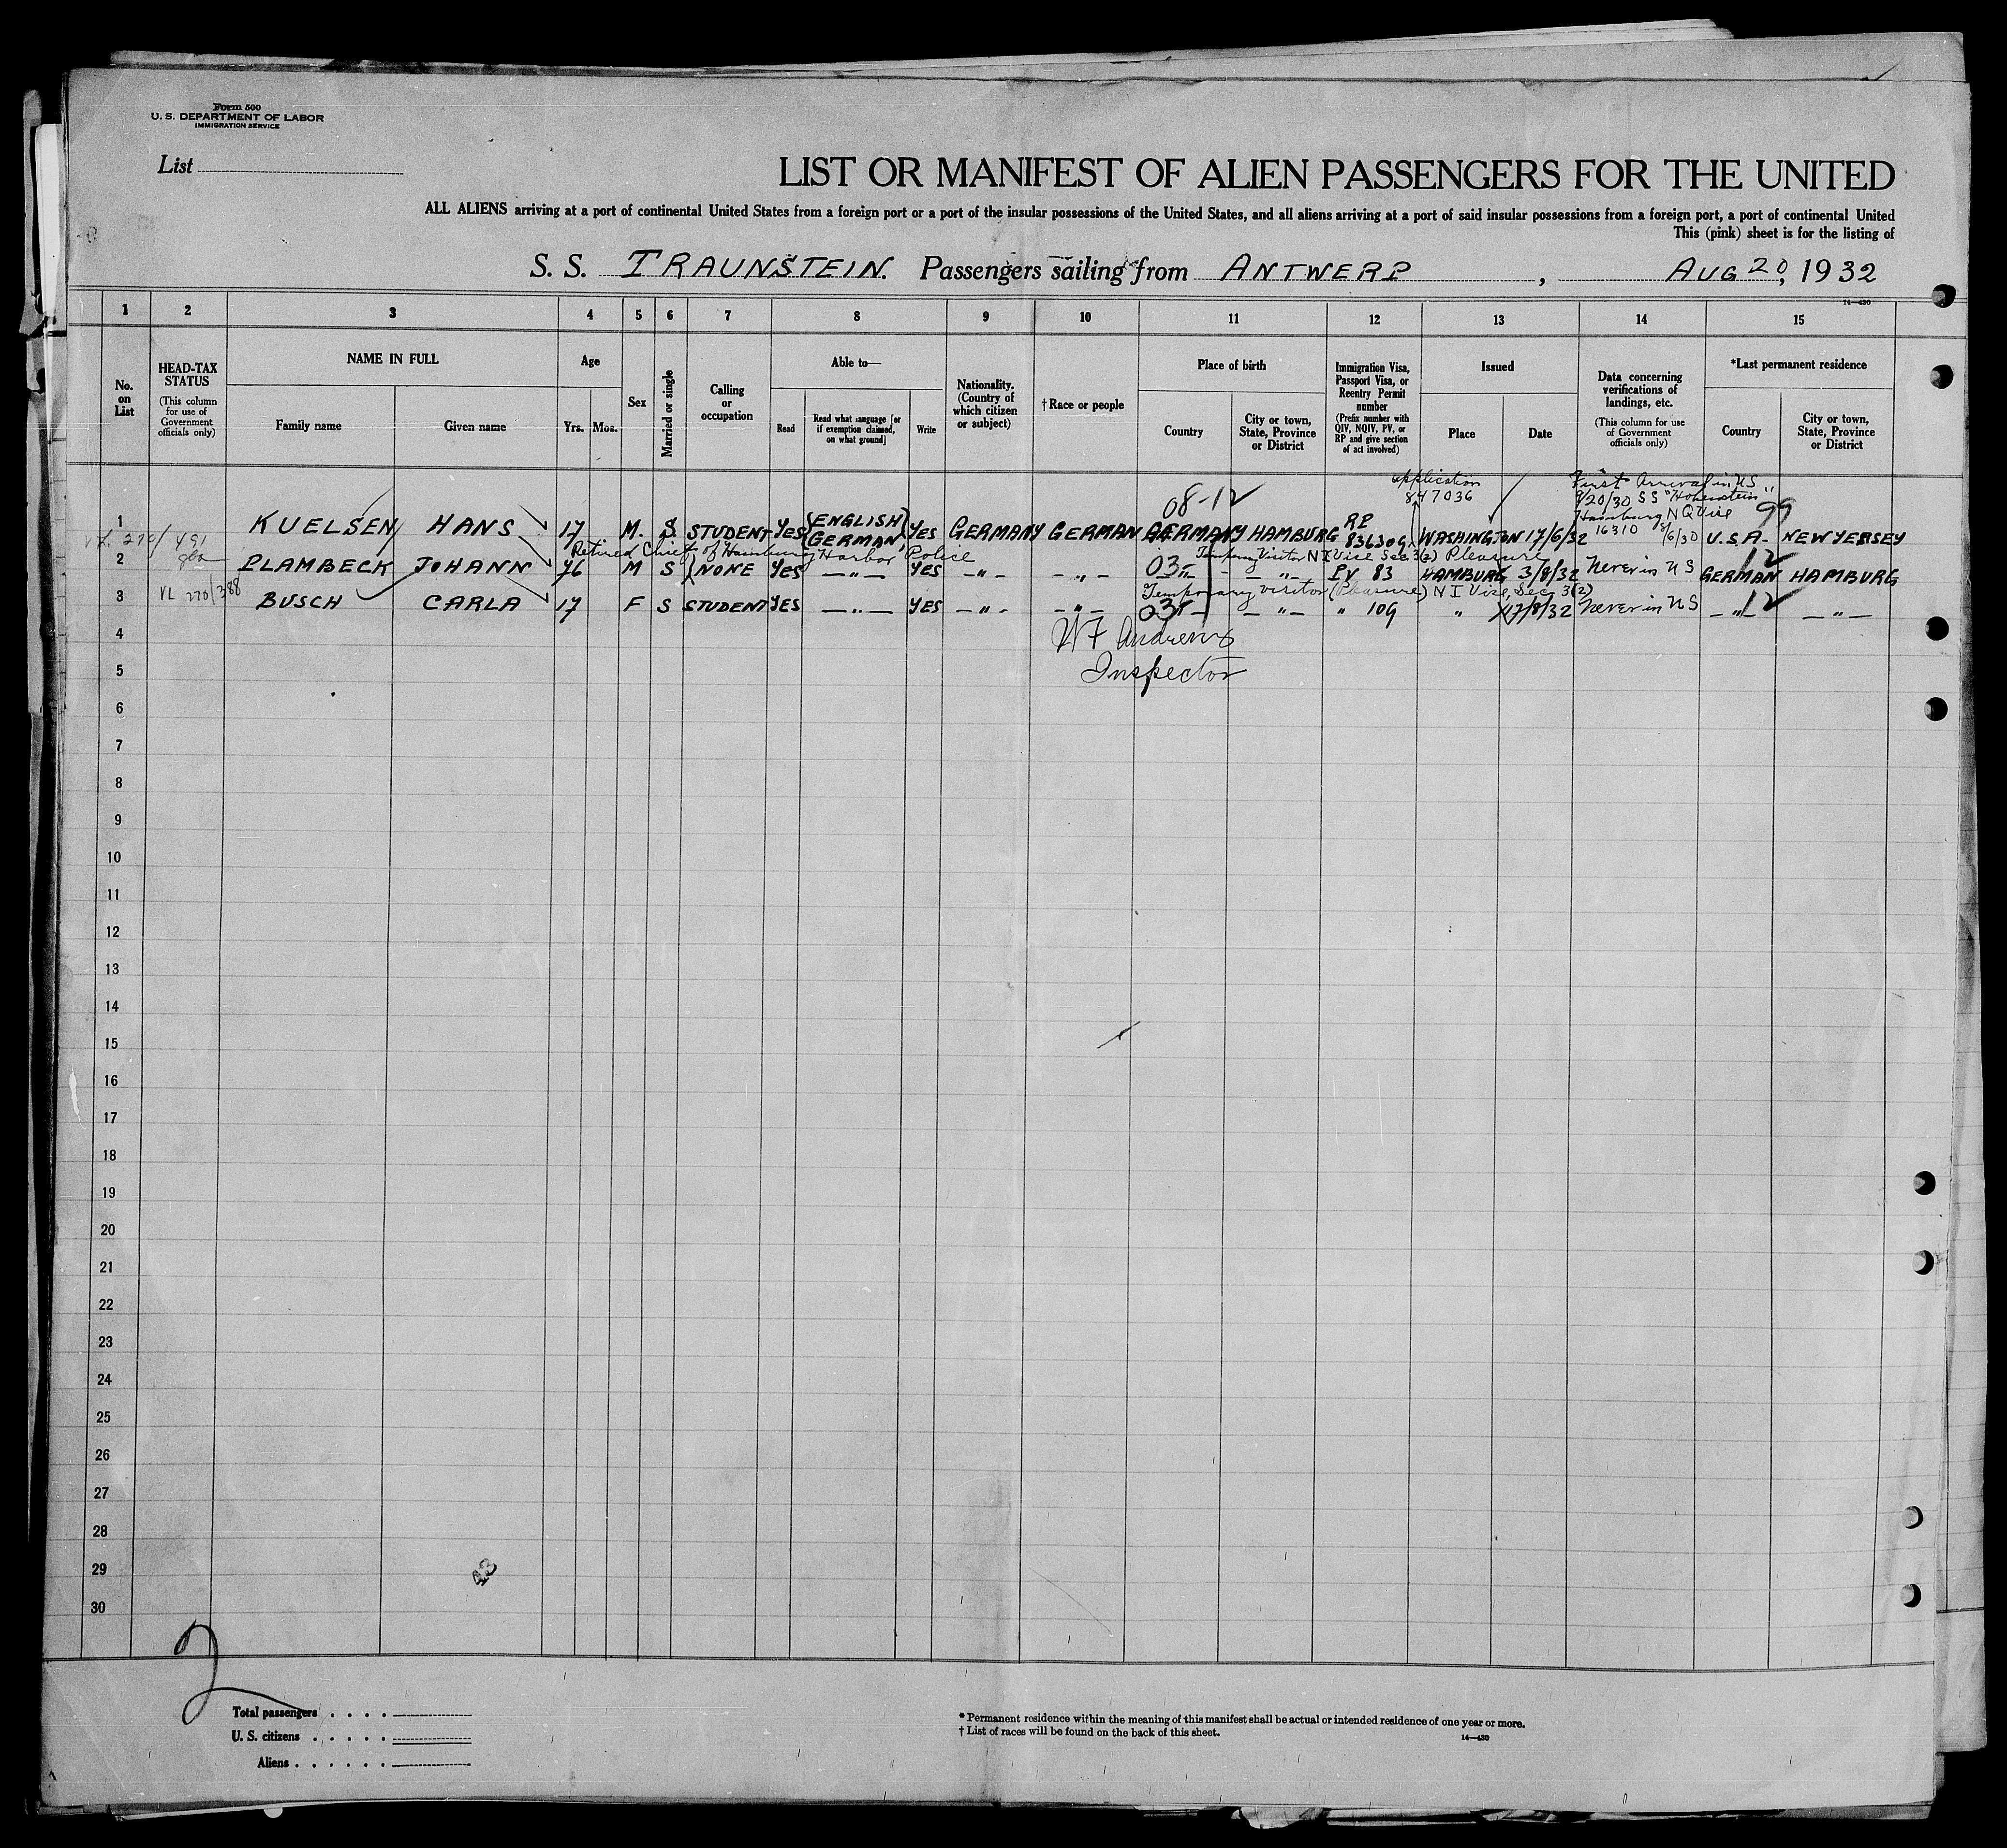 Form 500
U. S. DEPARTMENT OF LABOR
IMMIGRATION SERVICE
List
LIST OR MANIFEST OF ALIEN PASSENGERS FOR THE UNITED
ALL ALIENS arriving at a port of continental United States from a foreign port or a port of the insular possessions of the United States, and all aliens arriving at a port of said insular possessions from a foreign port, a port of continental United
This (pink) sheet is for the listing of
S. S. TRAUNSTEIN. Passengers sailing from ANTWERP, AUG 20, 1932
14—430
1 2 3 4 5 6 7 8 9 10 11 12 13 14 15
No. on List
HEAD-TAX STATUS
(This column for use of Government officials only)
NAME IN FULL
Family name
Given name
Age
Yrs.
Mos.
Sex
Married or single
Calling or occupation
Able to—
Read
Read what language [or if exemption claimed, on what ground]
Write
Nationality. (Country of which citizen or subject)
†Race or people
Place of birth
Country
City or town, State, Province or District
Immigration Visa, Passport Visa, or Reentry Permit number
(Prefix number with QIV, NQIV, PV, or RP and give section of act involved)
Issued
Place
Date
Data concerning verifications of landings, etc.
(This column for use of Government officials only)
*Last permanent residence
Country
City or town, State, Province or District
08-12
application
847036
First Arrival in US
9/20/30 SS "Hohenstein"
Hamburg NQ Vise
16310 8/6/30
99
1 KUELSEN HANS 17 M. S. STUDENT YES {ENGLISH GERMAN} YES GERMANY GERMAN GERMANY HAMBURG RP 836306 WASHINGTON 17/6/32 U.S.A. NEW YERSEY
270/491
Retired Chief of Hamburg Harbor Police
Temporary Visitor NI Vise Sec 3(2) Pleasure
2 PLAMBECK JOHANN 76 M S NONE YES —"— YES —"— —"— 03 —"— PV 83 HAMBURG 3/8/32 Never in US 12 GERMAN HAMBURG
VL 270/388
Temporary visitor (Pleasure) NI Vise, Sec 3(2)
3 BUSCH CARLA 17 F S STUDENT YES —"— YES —"— —"— 03 —"— " 109 " 17/8/32 Never in US —"— 12 —"—
4
W F Andrews
5
Inspector
6
7
8
9
10
11
12
13
14
15
16
17
18
19
20
21
22
23
24
25
26
27
28
29
30
Total passengers
U. S. citizens
Aliens
* Permanent residence within the meaning of this manifest shall be actual or intended residence of one year or more.
† List of races will be found on the back of this sheet.
14—430